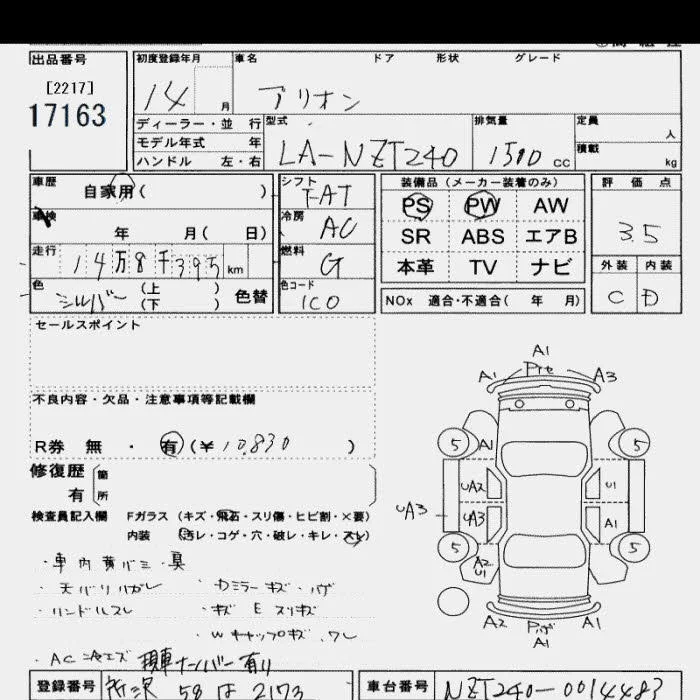 出品番号
[2217]
17163
初度登録年月 車名 ドア 形状 グレード
14 月 アリオン
ディーラー・並 行
モデル年式 年
ハンドル 左・右
型式 排気量 定員 人
LA-NZT240 1500 cc 積載 kg
車歴 自家用( )
車検 年 月( 日)
走行 14万8千395 km
色 シルバー (上 ) (下 ) 色替
シフト FAT
冷房 AC
燃料 G
色コード 1C0
装備品(メーカー装着のみ)
PS PW AW
SR ABS エアB
本革 TV ナビ
NOx 適合・不適合( 年 月)
評 価 点
3.5
外装 内装
C D
セールスポイント
不良内容・欠品・注意事項等記載欄
R券 無 ・ 有 (¥ 10,830 )
修復歴 箇
有 所
検査員記入欄 Fガラス (キズ・飛石・スリ傷・ヒビ割・×要)
内装 (汚レ・コゲ・穴・破レ・キレ・スレ)
・車内黄バミ・臭
・天バリハガレ
・ハンドルスレ
・Wキャップキズ、ワレ
・AC 現車ナンバー有り
A1
A1 A3
5 A1 5
UA2 U1
UA3 UA3 A1
5 A2 U1 5
A2 A1
A1
登録番号 所沢 58 は 2173
車台番号 NZT240-0014483